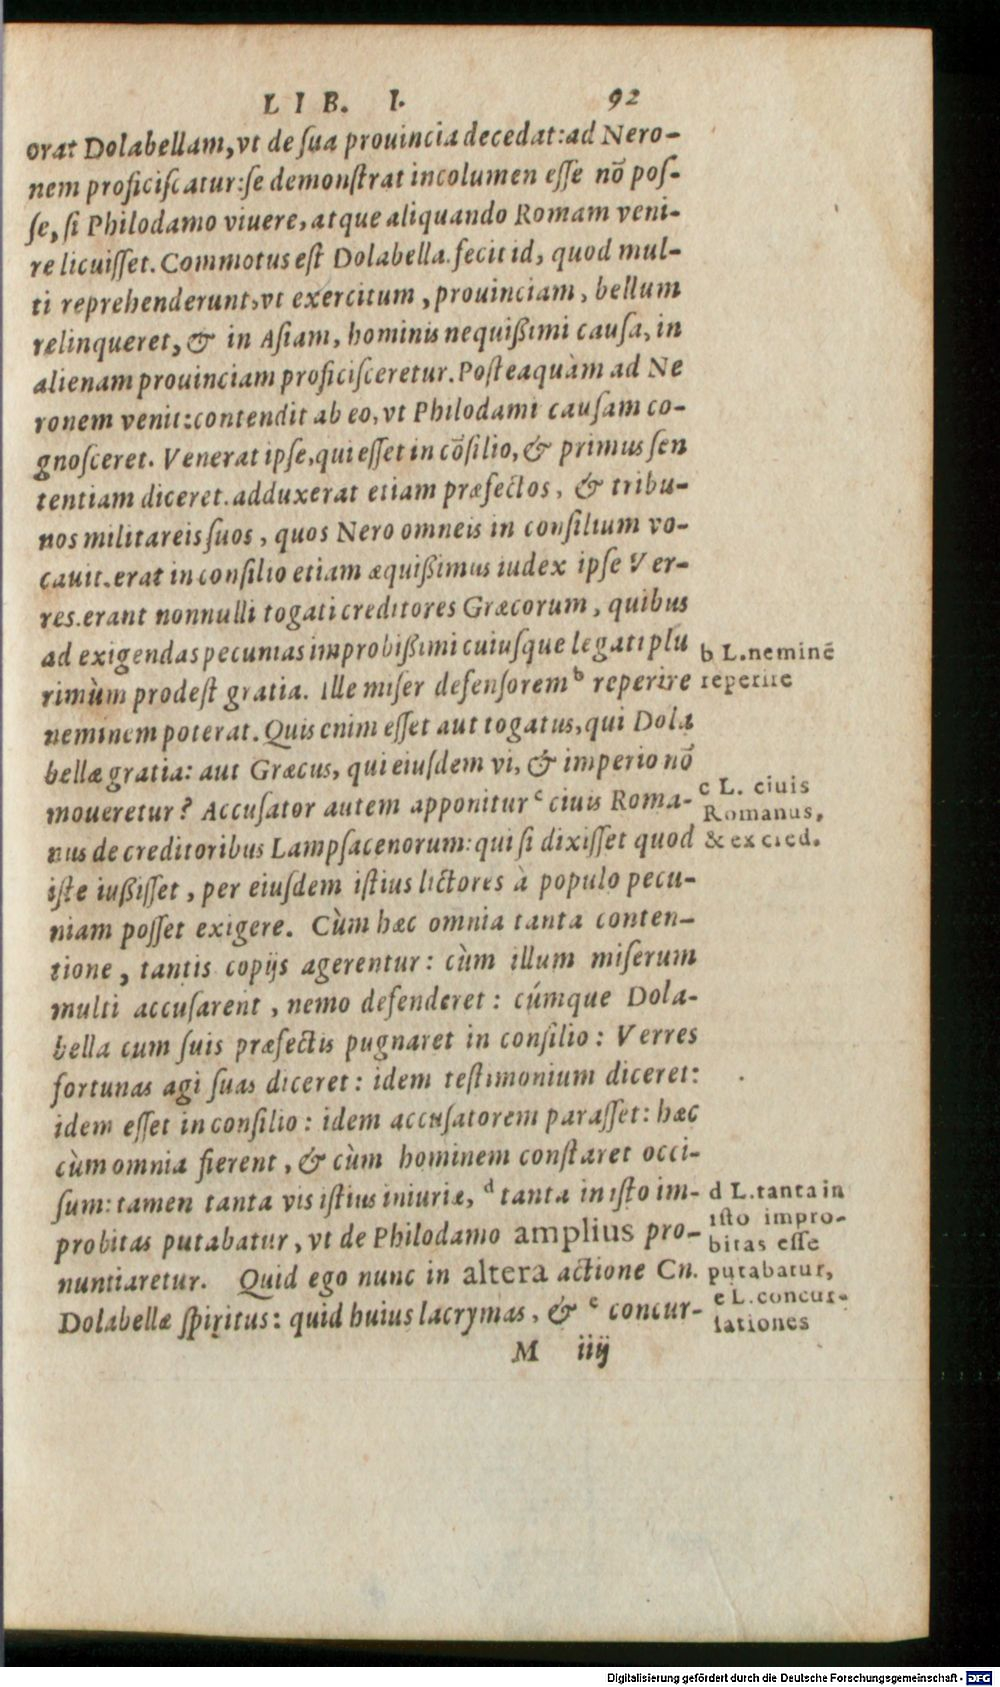 LIB. I. 92
orat Dolabellam, vt de sua prouincia decedat: ad Nero-
nem proficiscatur: se demonstrat incolumen esse nō pos-
se, si Philodamo viuere, atque aliquando Romam veni-
re licuisset. Commotus est Dolabella. fecit id, quod mul-
ti reprehenderunt, vt exercitum, prouinciam, bellum
relinqueret, & in Asiam, hominis nequißimi causa, in
alienam prouinciam proficisceretur. Posteaquàm ad Ne
ronem venit: contendit ab eo, vt Philodami causam co-
gnosceret. Venerat ipse, qui esset in cōsilio, & primus sen
tentiam diceret. adduxerat etiam præfectos, & tribu-
nos militareis suos, quos Nero omneis in consilium vo-
cauit. erat in consilio etiam æquißimus iudex ipse Ver-
res. erant nonnulli togati creditores Græcorum, quibus
ad exigendas pecunias improbißimi cuiusque legati plu
rimùm prodest gratia. Ille miser defensorem b reperire
neminem poterat. Quis enim esset aut togatus, qui Dola
bellæ gratia: aut Græcus, qui eiusdem vi, & imperio nō
moueretur? Accusator autem apponitur c ciuis Roma-
nus de creditoribus Lampsacenorum: qui si dixisset quod
iste iußisset, per eiusdem istius lictores à populo pecu-
niam posset exigere. Cùm hæc omnia tanta conten-
tione, tantis copijs agerentur: cùm illum miserum
multi accusarent, nemo defenderet: cúmque Dola-
bella cum suis præfectis pugnaret in consilio: Verres
fortunas agi suas diceret: idem testimonium diceret:
idem esset in consilio: idem accusatorem parasset: hæc
cùm omnia fierent, & cùm hominem constaret occi-
sum: tamen tanta vis istius iniuriæ, d tanta in isto im-
probitas putabatur, vt de Philodamo amplius pro-
nuntiaretur. Quid ego nunc in altera actione Cn.
Dolabellæ spiritus: quid huius lacrymas, & e concur-
M iiij
b L. neminē
reperire
c L. ciuis
Romanus,
& ex cred.
d L. tanta in
isto impro-
bitas esse
putabatur,
e L. concur-
sationes
Digitalisierung gefördert durch die Deutsche Forschungsgemeinschaft - DFG